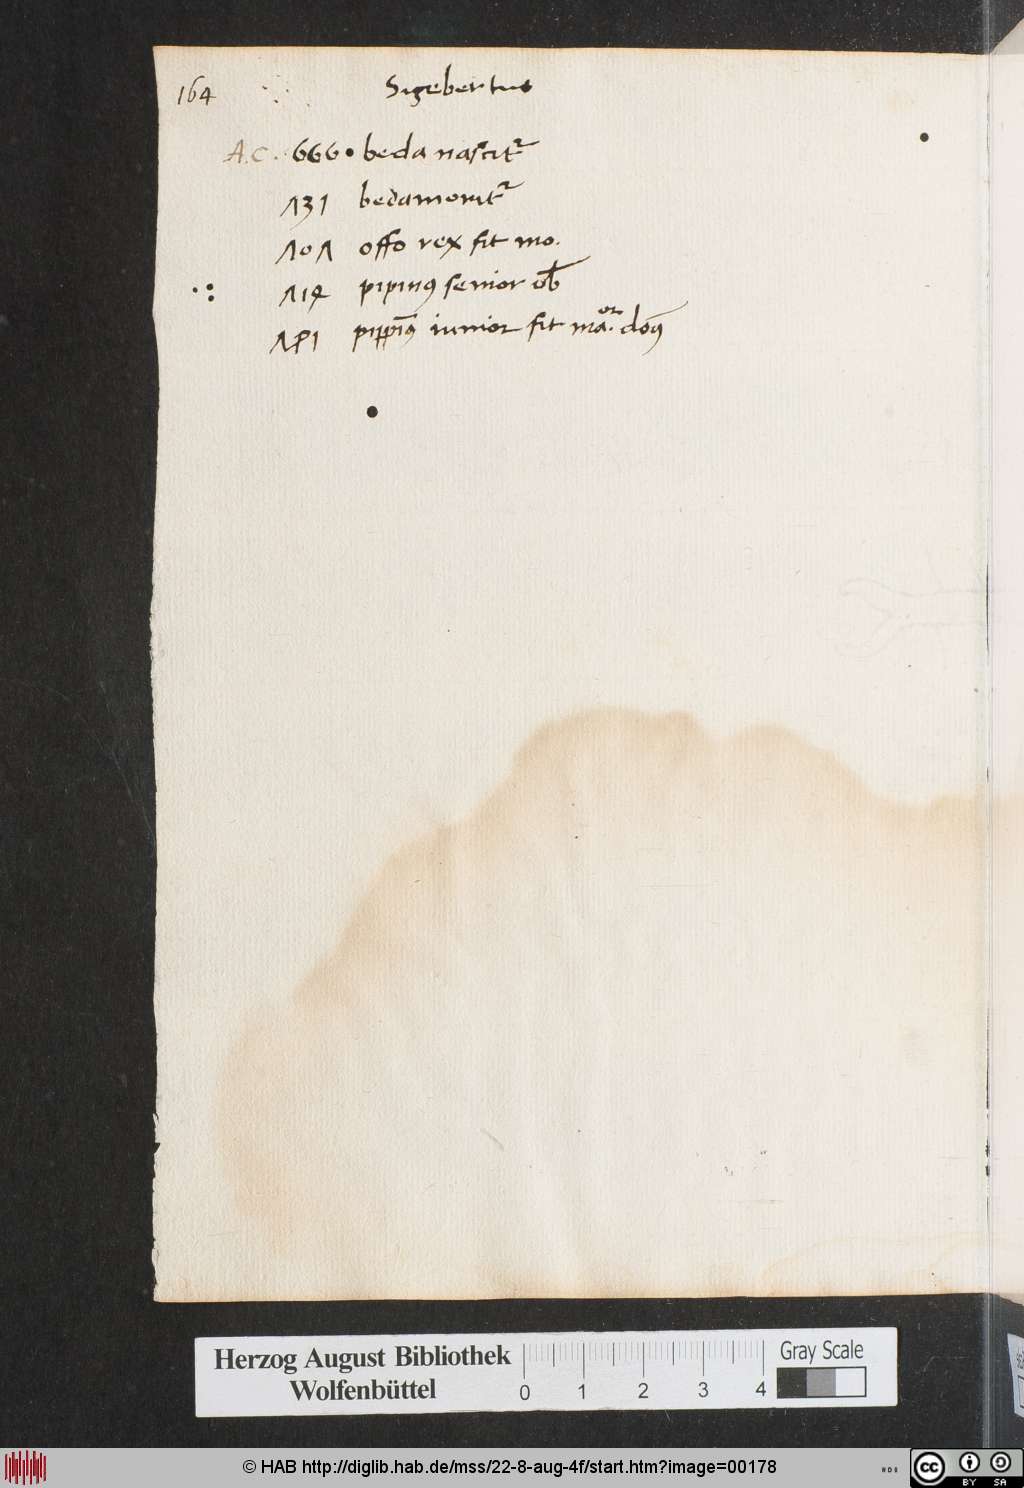 164
Sigebertus
A.C. 666 • beda nascit᷑
731 bedamorit᷑
707 offo rex fit mo.
714 pipinꝰ senior ob̄
iunior fit maor. domꝰ
Herzog August Bibliothek
Wolfenbüttel
0 1 2 3 4
Gray Scale
© HAB http://diglib.hab.de/mss/22-8-aug-4f/start.htm?image=00178
cc BY SA